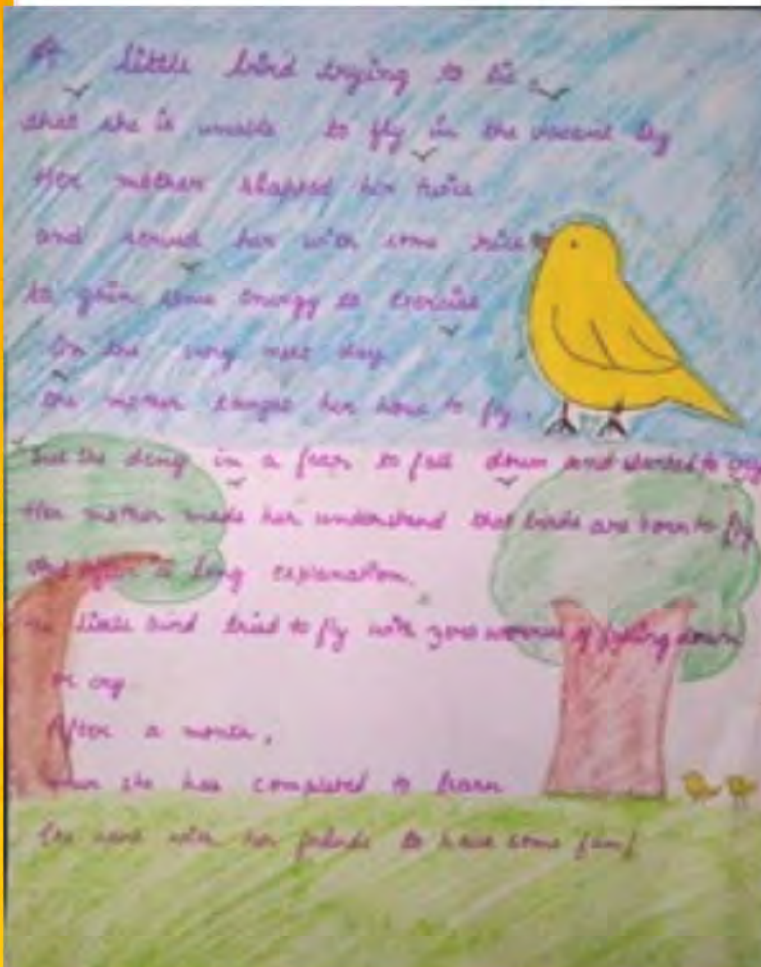 A little bird trying to lie,
that she is unable to fly in the vacant sky
Her mother slapped her twice
and served her with some rice
to gain some energy to exercise
On the very next day
the mother taught her how to fly.
but the deny in a fear to fall down and started to cry
Her mother made her understand that birds are born to fly
And after a long explanation,
The little bird tried to fly with zero worries of falling down
or cry
After a month,
when she has completed to learn
She went with her friends to have some fun!